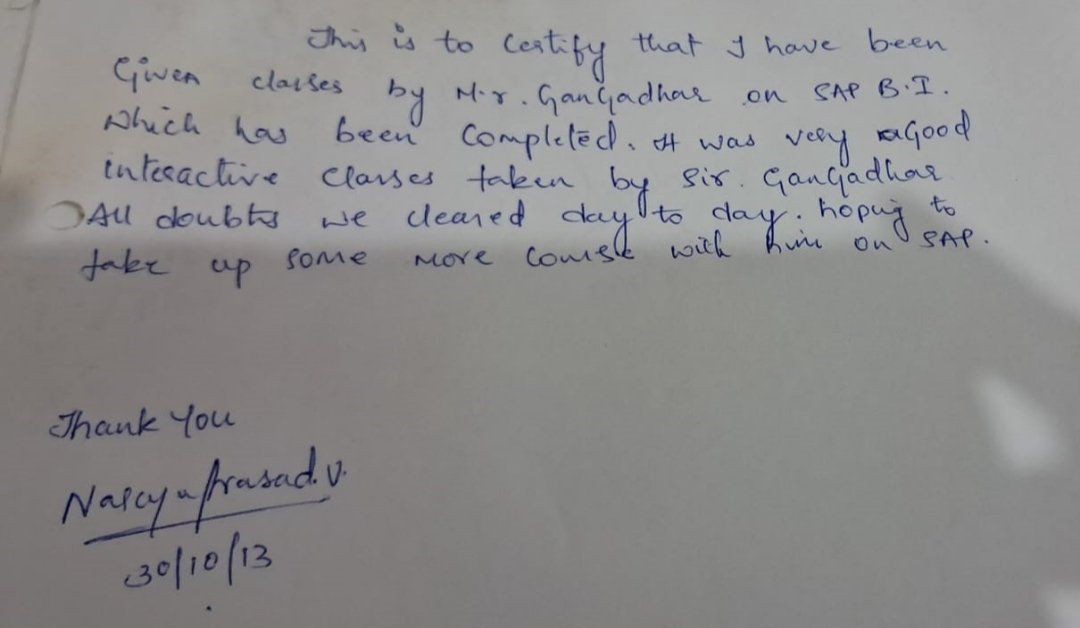 This is to certify that I have been
Given classes by M.r. Gangadhar on SAP B.I.
which has been Completed. It was very a Good
interactive classes taken by Sir. Gangadhar
All doubts we cleared day to day. hoping to
take up some more course with him on SAP.
Thank You
Prasad. V.
30/10/13